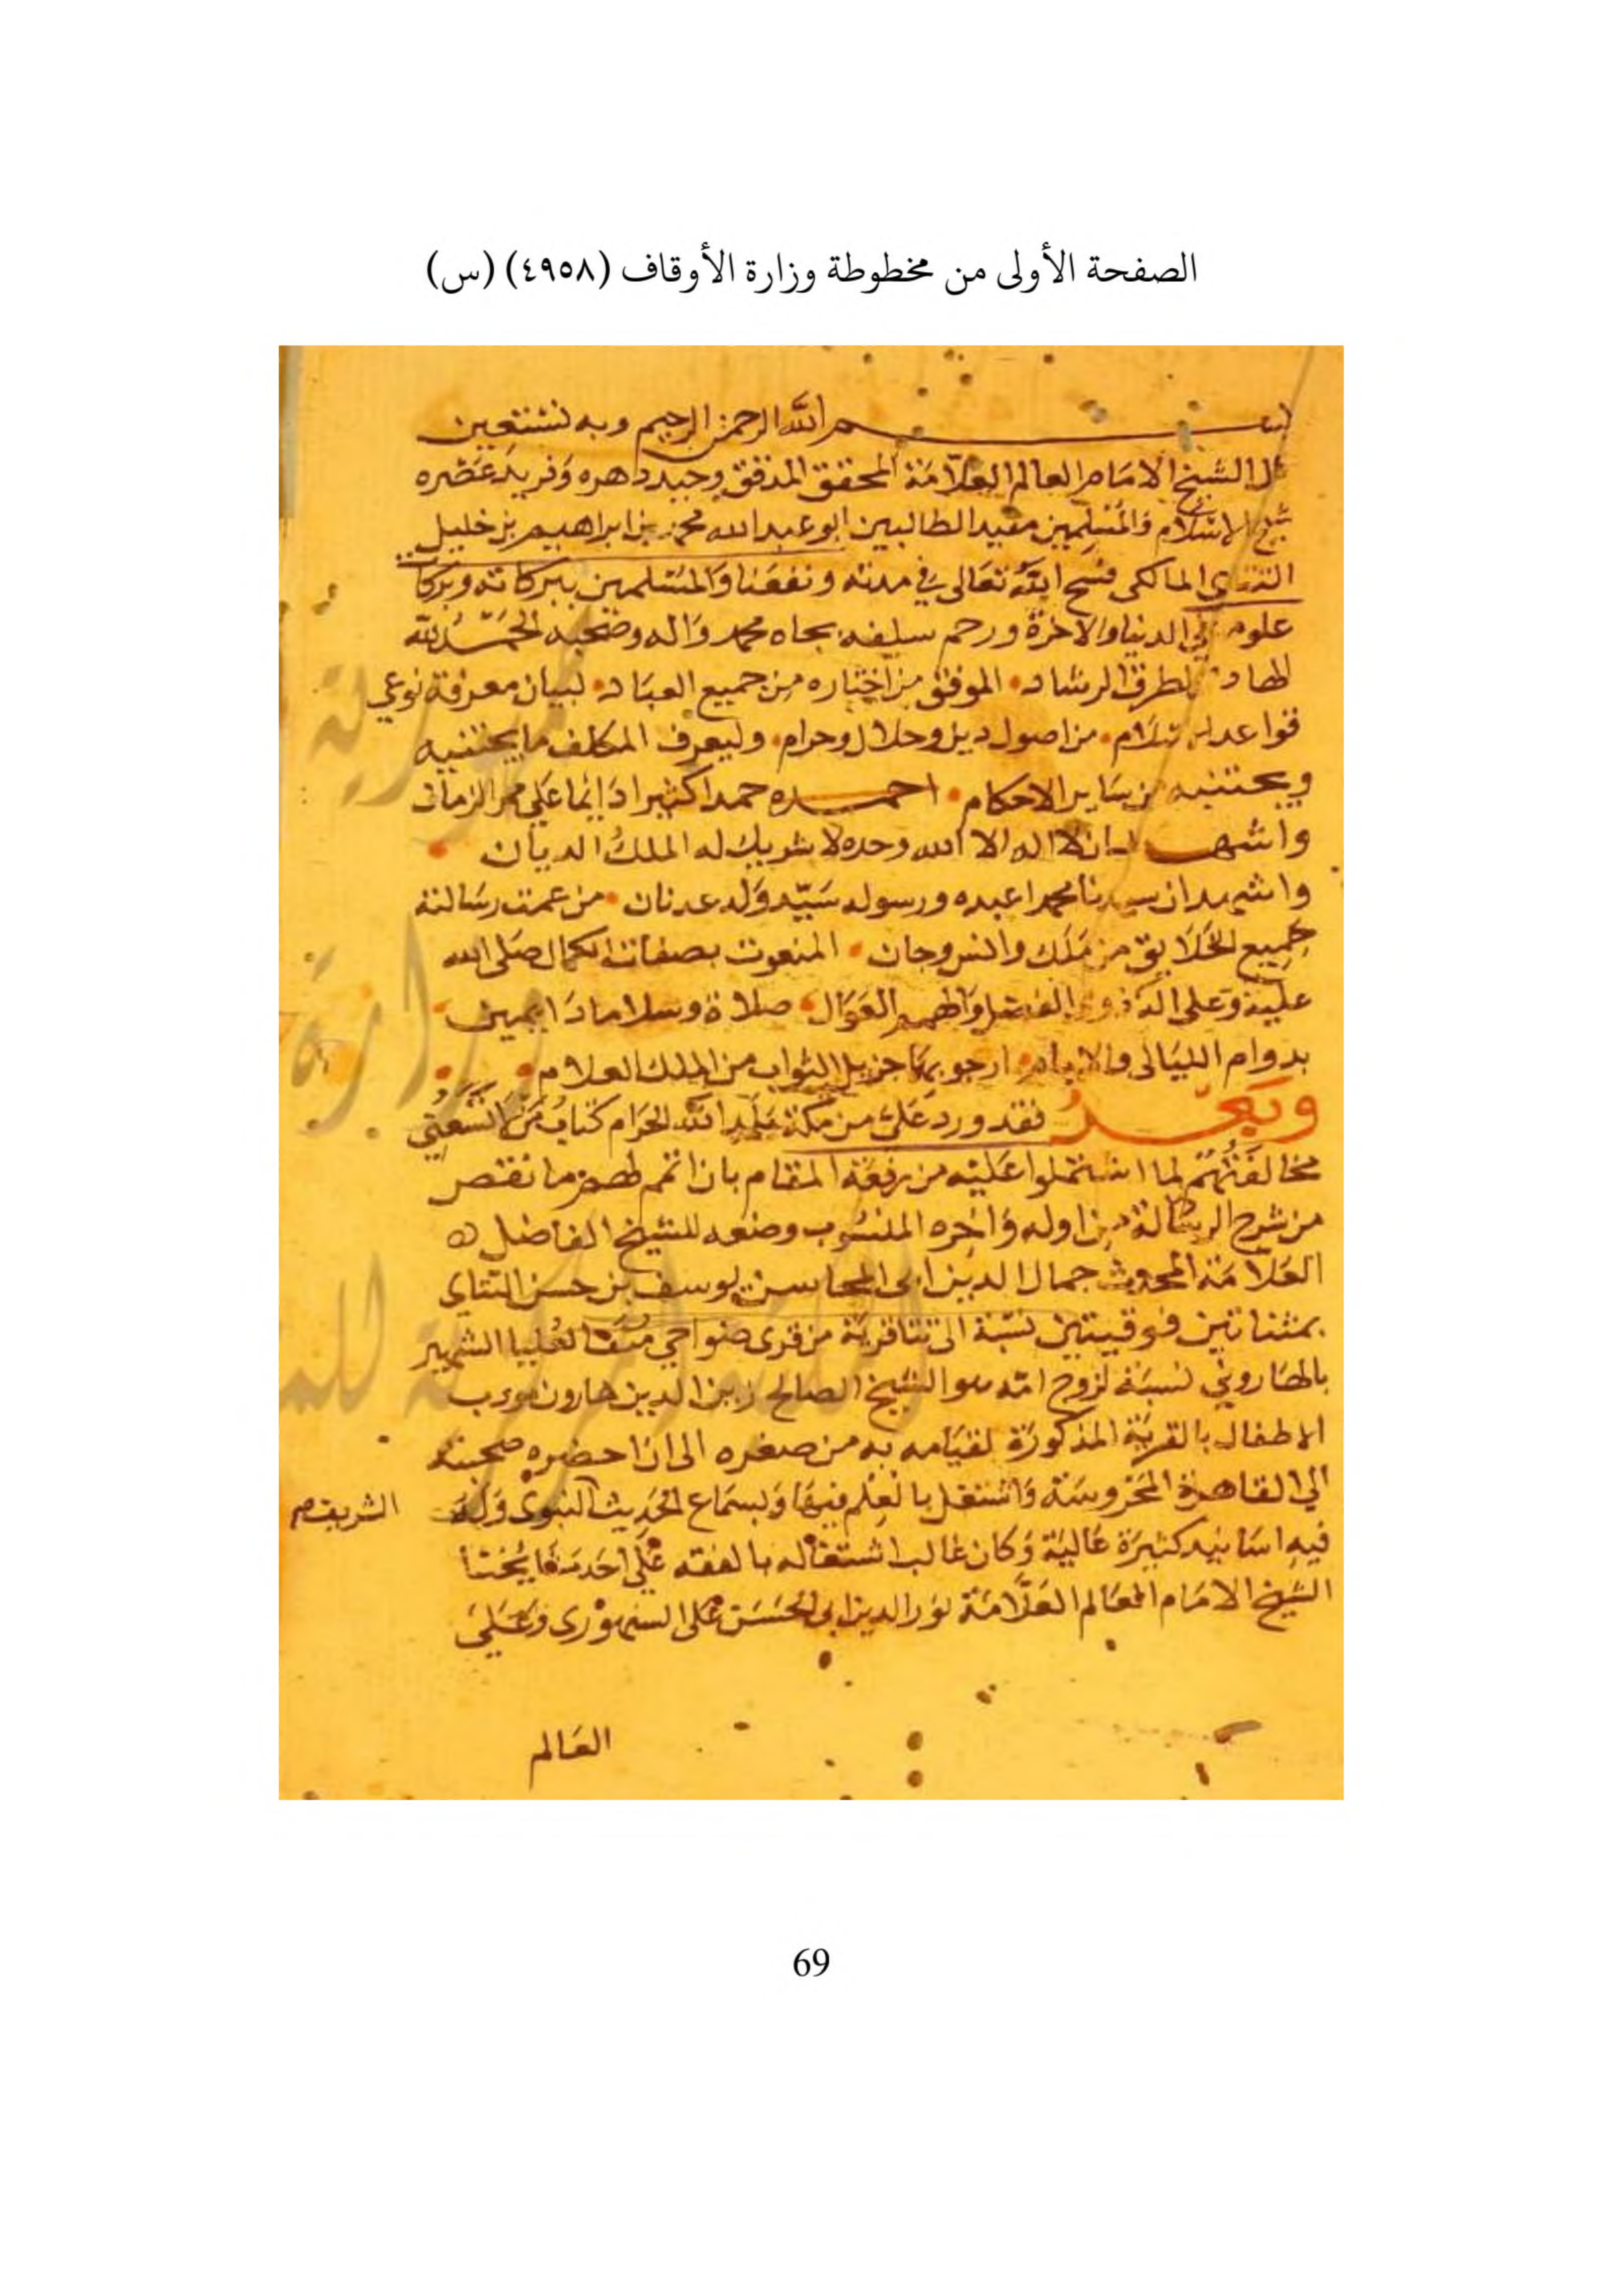 الصفحة الأولى من مخطوطة وزارة الأوقاف (٤٩٥٨) (س)
بسم الله الرحمن الرحيم وبه نستعين
قال الشيخ الامام العالم العلامة المحقق المدقق وحيد دهره وفريد عصره
شيخ الاسلام والمسلمين مفيد الطالبين ابو عبد الله محمد بن ابراهيم بن خليل
التتاى المالكى فسح الله تعالى في مدته ونفعنا والمسلمين ببركاته وبركات
علومه في الدنيا والاخرة ورحم سلفه بجاه محمد واله وصحبه الحمد لله
الهادى لطرق الرشاد الموفق من اختاره من جميع العباد لبيان معرفة نوعي
قواعد الاسلام من اصول دين وحلال وحرام وليعرف المكلف ما يجتنبيه
ويجتنبه من ساير الاحكام احمده حمدا كثيرا دايما على ممر الزمان
واشهد ان لا اله الا الله وحده لا شريك له الملك الديان
واشهد ان سيدنا محمدا عبده ورسوله سيد ولد عدنان من عمت رسالته
جميع الخلايق من ملك وانس وجان المنعوت بصفات الكمال صلى الله
عليه وعلى اله ذوى الفضل والفهم العوال صلاة وسلاما دايمين
بدوام الليالى والايام ارجو بها جزيل الثواب من الملك العلام
وبعد فقد ورد على من مكة بلد الله الحرام كتاب من لا تسعني
مخالفتهم لما اشتملوا عليه من رفعة المقام بان اتمم لهم ما نقص
من شرح الرسالة من اوله واخره المنسوب وضعه للشيخ الفاضل
العلامة المحدث جمال الدين ابى المحاسن يوسف بن حسن التتاى
بمثناتين فوقيتين نسبة الى تتا قرية من قرى ضواحي منف العليا الشهير
بالهاروني نسبة لزوج امه هو الشيخ الصالح زين الدين هارون مودب
الاطفال بالقرية المذكورة لقيامه به من صغره الى ان احضره صحبته
الي القاهرة المحروسة واشتغل بالعلم فيها وبسماع الحديث النبوى وله
الشريف
فيه اسانيد كثيرة عالية وكان غالب اشتغاله بالفقه على احد مشايخنا
الشيخ الامام العالم العلامة نور الدين ابى الحسن على السنهورى وعلى
العالم
69